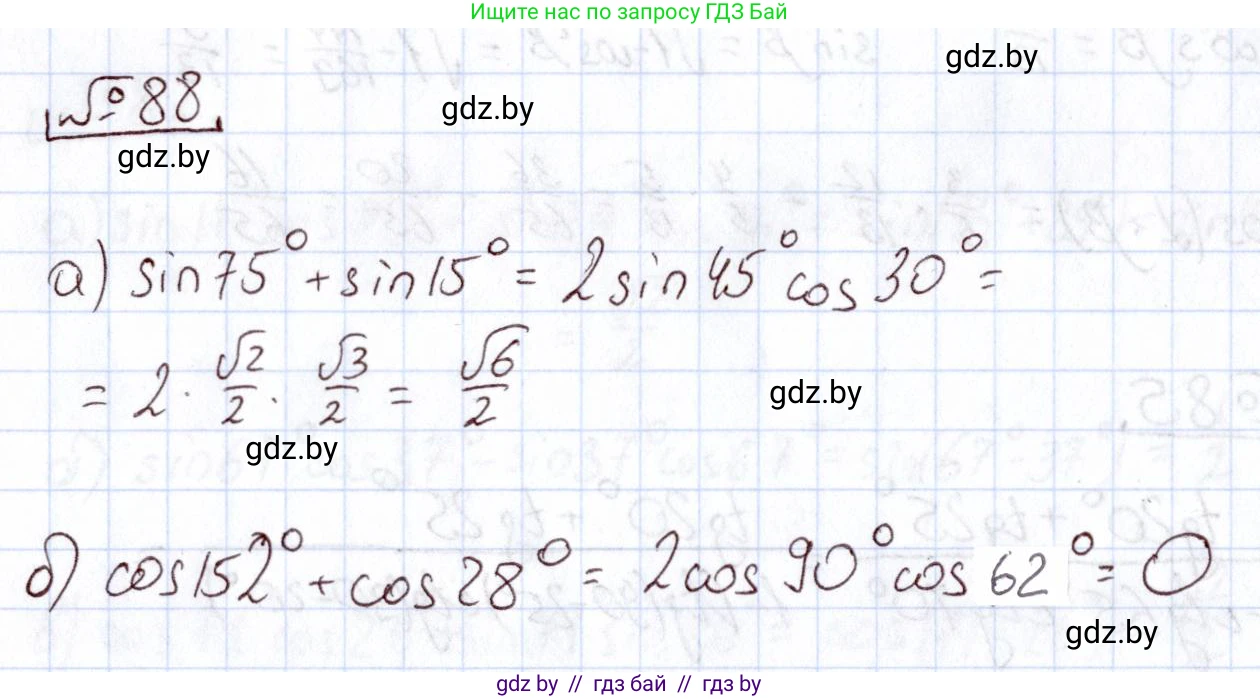 Ищите нас по запросу ГДЗ Бай
gdz.by
№ 88
gdz.by
gdz.by
а) sin 75° + sin 15° = 2 sin 45° cos 30° =
= 2 · √2/2 · √3/2 = √6/2
gdz.by
gdz.by
б) cos 152° + cos 28° = 2 cos 90° cos 62° = 0
gdz.by
gdz.by // гдз бай // гдз by